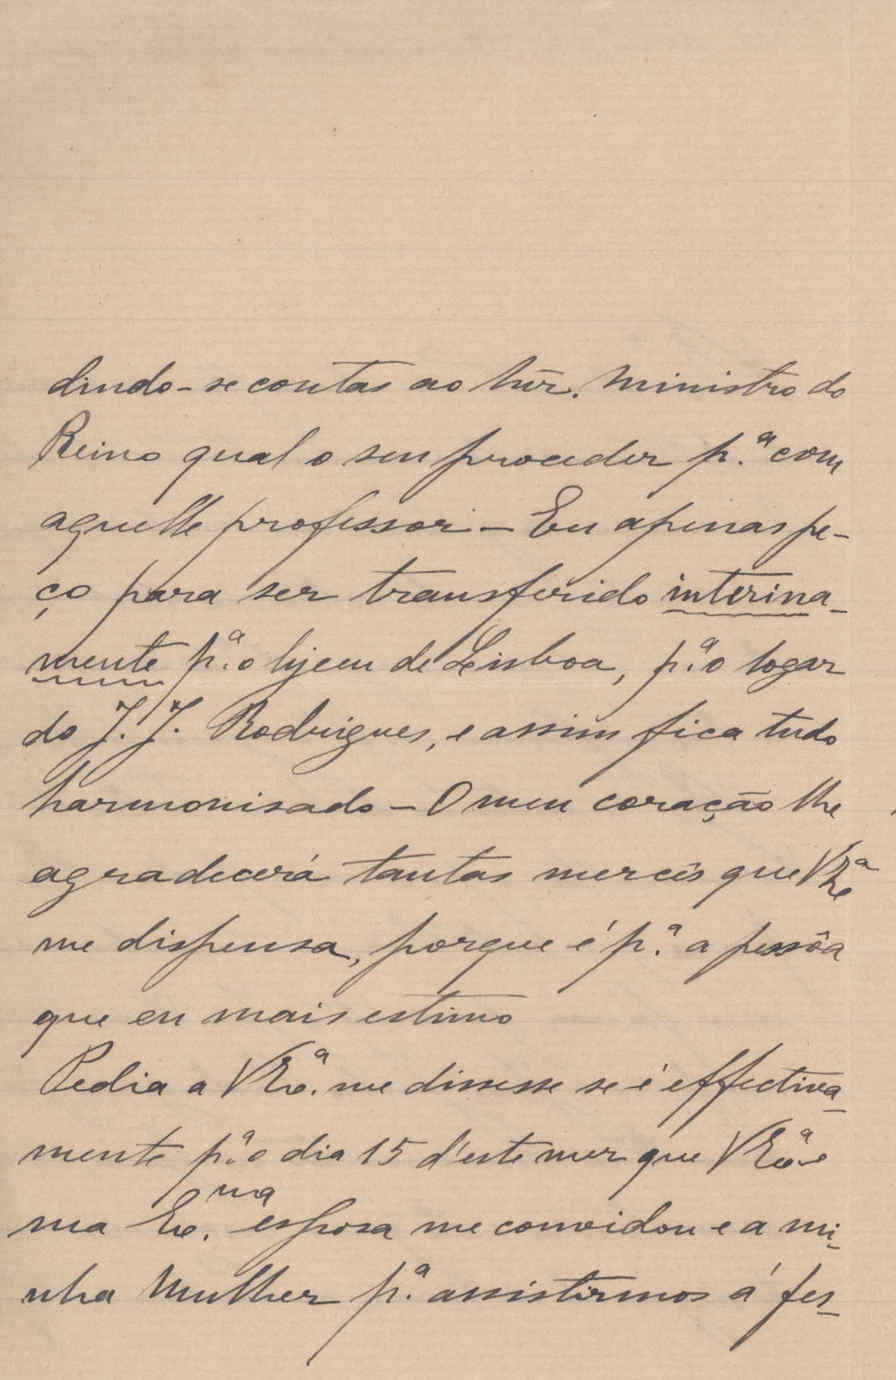 dindo-se contas ao Snr. Ministro do
Reino qual o seu proceder p.ª com
aquelle professor — Eu apenas pe-
ço para ser transferido interina-
mente p.ª o lyceu de Lisboa, p.ª o logar
do J. J. Rodrigues, e assim fica tudo
harmonisado — O meu coração lhe
agradecerá tantas mercês que VEx.ª
me dispensa, porque é p.ª a pessôa
que eu mais estimo
Pedia a VEx.ª me dissesse se é effectiva-
mente p.ª o dia 15 d'este mez que VEx.ª e
sua Ex.ma esposa me convidou e a mi-
nha Mulher p.ª assistirmos á fes-